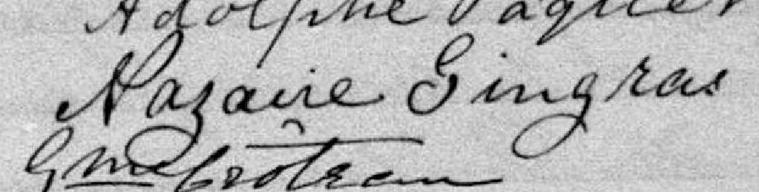 Adolphe Paquet
Nazaire Gingras
Gme Crôteau